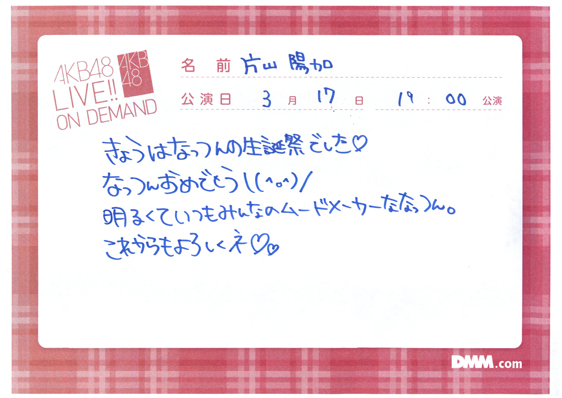 AKB48
LIVE!!
ON DEMAND
AKB
48
名前 片山 陽加
公演日 3月 17日 19:00 公演
きょうはなっつんの生誕祭でした♡
なっつんおめでとう\(^o^)/
明るくていつもみんなのムードメーカーななっつん。
これからもよろしくネ♡♡
DMM.com